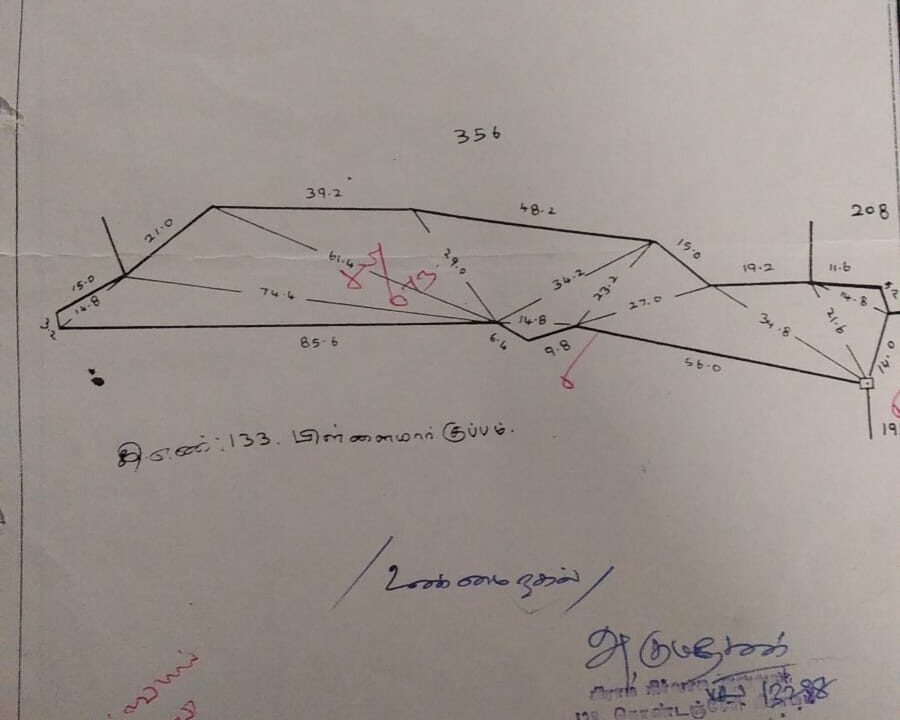 356
39.2
48.2
208
21.0
15.0
61.4
29.0
15.0
14.8
74.4
34.2
23.2
19.2
11.6
14.8
3.2
85.6
6.4
14.8
9.8
27.0
34.8
21.6
56.0
14.0
19
கி.எண்: 133. பிள்ளைமார் குப்பம்.
/உண்மை நகல்/